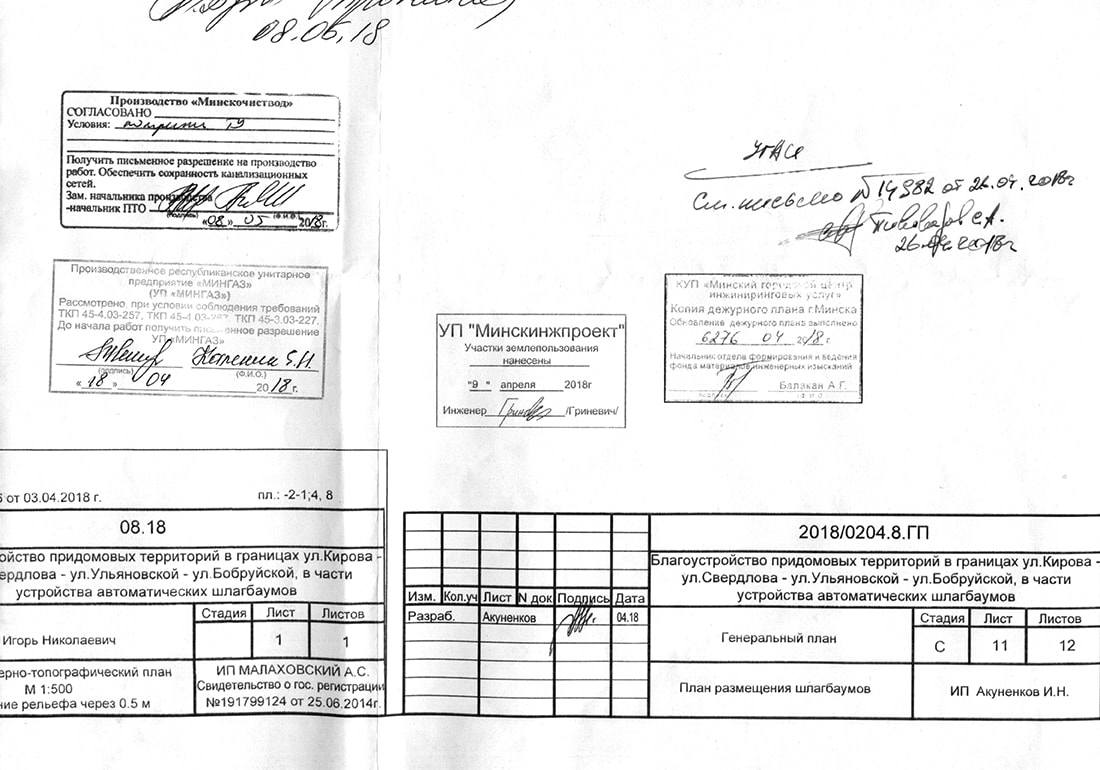 08.05.18
Производство «Минскочиствод»
СОГЛАСОВАНО
Условия:
Получить письменное разрешение на производство
работ. Обеспечить сохранность канализационных
сетей.
Зам. начальника производства
-начальник ПТО
(подпись) (Ф.И.О.)
«08» 05 2018г.
Производственное республиканское унитарное
предприятие «МИНГАЗ»
(УП «МИНГАЗ»)
Рассмотрено, при условии соблюдения требований
ТКП 45-4.03-257, ТКП 45-4.03-267, ТКП 45-3.03-227.
До начала работ получить письменное разрешение
УП «МИНГАЗ»
(подпись) (Ф.И.О.)
«18» 04 2018г.
УП "Минскинжпроект"
Участки землепользования
нанесены
"9 " апреля 2018г
Инженер /Гриневич/
См. письмо №14982 от 26.04.2018г
26.04.2018г
КУП «Минский городской центр
инжиниринговых услуг»
Копия дежурного плана г.Минска
Обновление дежурного плана выполнено
6276 04 2018г.
Начальник отдела формирования и ведения
фонда материалов инженерных изысканий
Балакан А.Г.
подпись Ф И О
6 от 03.04.2018 г. пл.: -2-1;4, 8
08.18
ойство придомовых территорий в границах ул.Кирова -
ердлова - ул.Ульяновской - ул.Бобруйской, в части
устройства автоматических шлагбаумов
Стадия Лист Листов
Игорь Николаевич 1 1
ерно-топографический план
М 1:500
ние рельефа через 0.5 м
ИП МАЛАХОВСКИЙ А.С.
Свидетельство о гос. регистрации
№191799124 от 25.06.2014г.
2018/0204.8.ГП
Благоустройство придомовых территорий в границах ул.Кирова -
ул.Свердлова - ул.Ульяновской - ул.Бобруйской, в части
устройства автоматических шлагбаумов
Изм. Кол.уч Лист N док Подпись Дата
Разраб. Акуненков 04.18
Генеральный план
Стадия Лист Листов
С 11 12
План размещения шлагбаумов
ИП Акуненков И.Н.